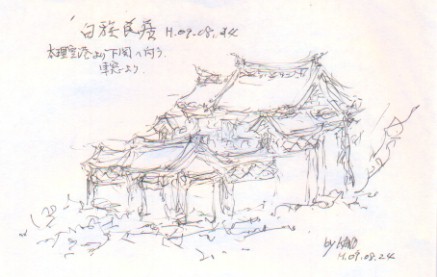 白族民居 H.09.08.24
大理空港より下関へ向う
車窓より
by
H.09.08.24